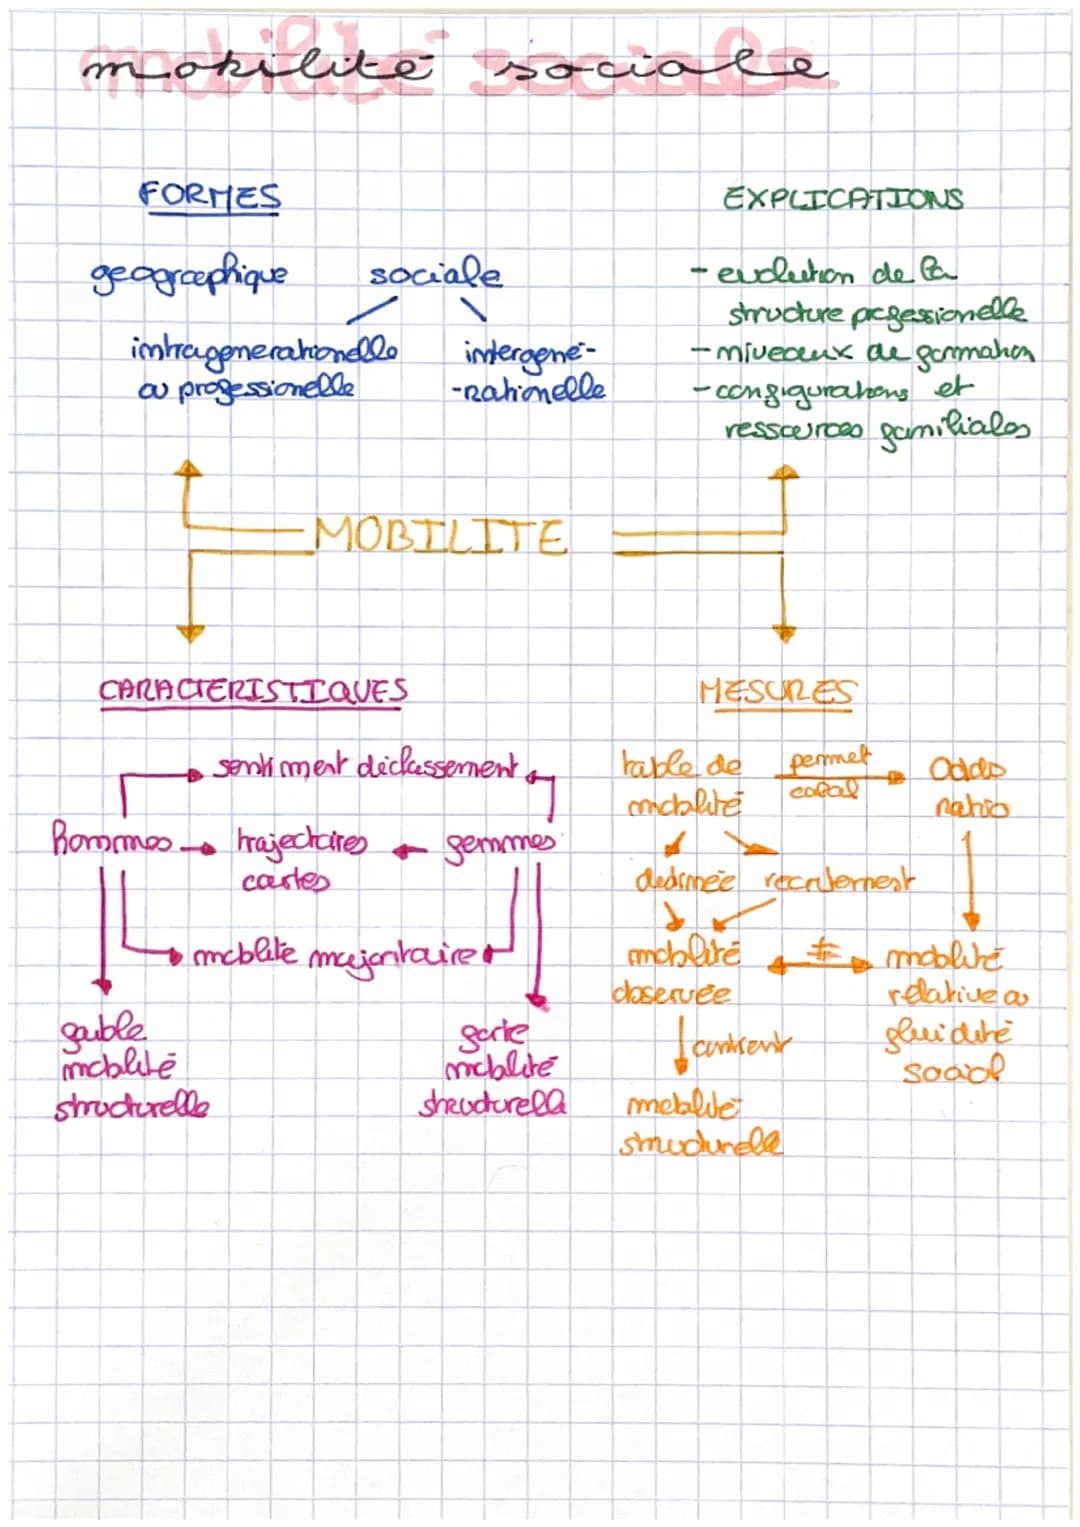 mobilité sociale
FORMES
geographique sociale
intragenerationelle
ou professionelle
intergené-
-rationelle
EXPLICATIONS
- evolution de la
structure professionelle
- niveaux de formation
- configurations et
ressources familiales
MOBILITE
CARACTERISTIQUES
sentiment déclassement
hommes trajectoires femmes
courtes
mobilité majoritaire
faible
mobilité
structurelle
forte
mobilité
structurelle
MESURES
table de permet Odds
mobilité calcul ratio
destinée recrutement
mobilité ≠ mobilité
observée relative ou
contient fluidité
social
mobilité
structurelle